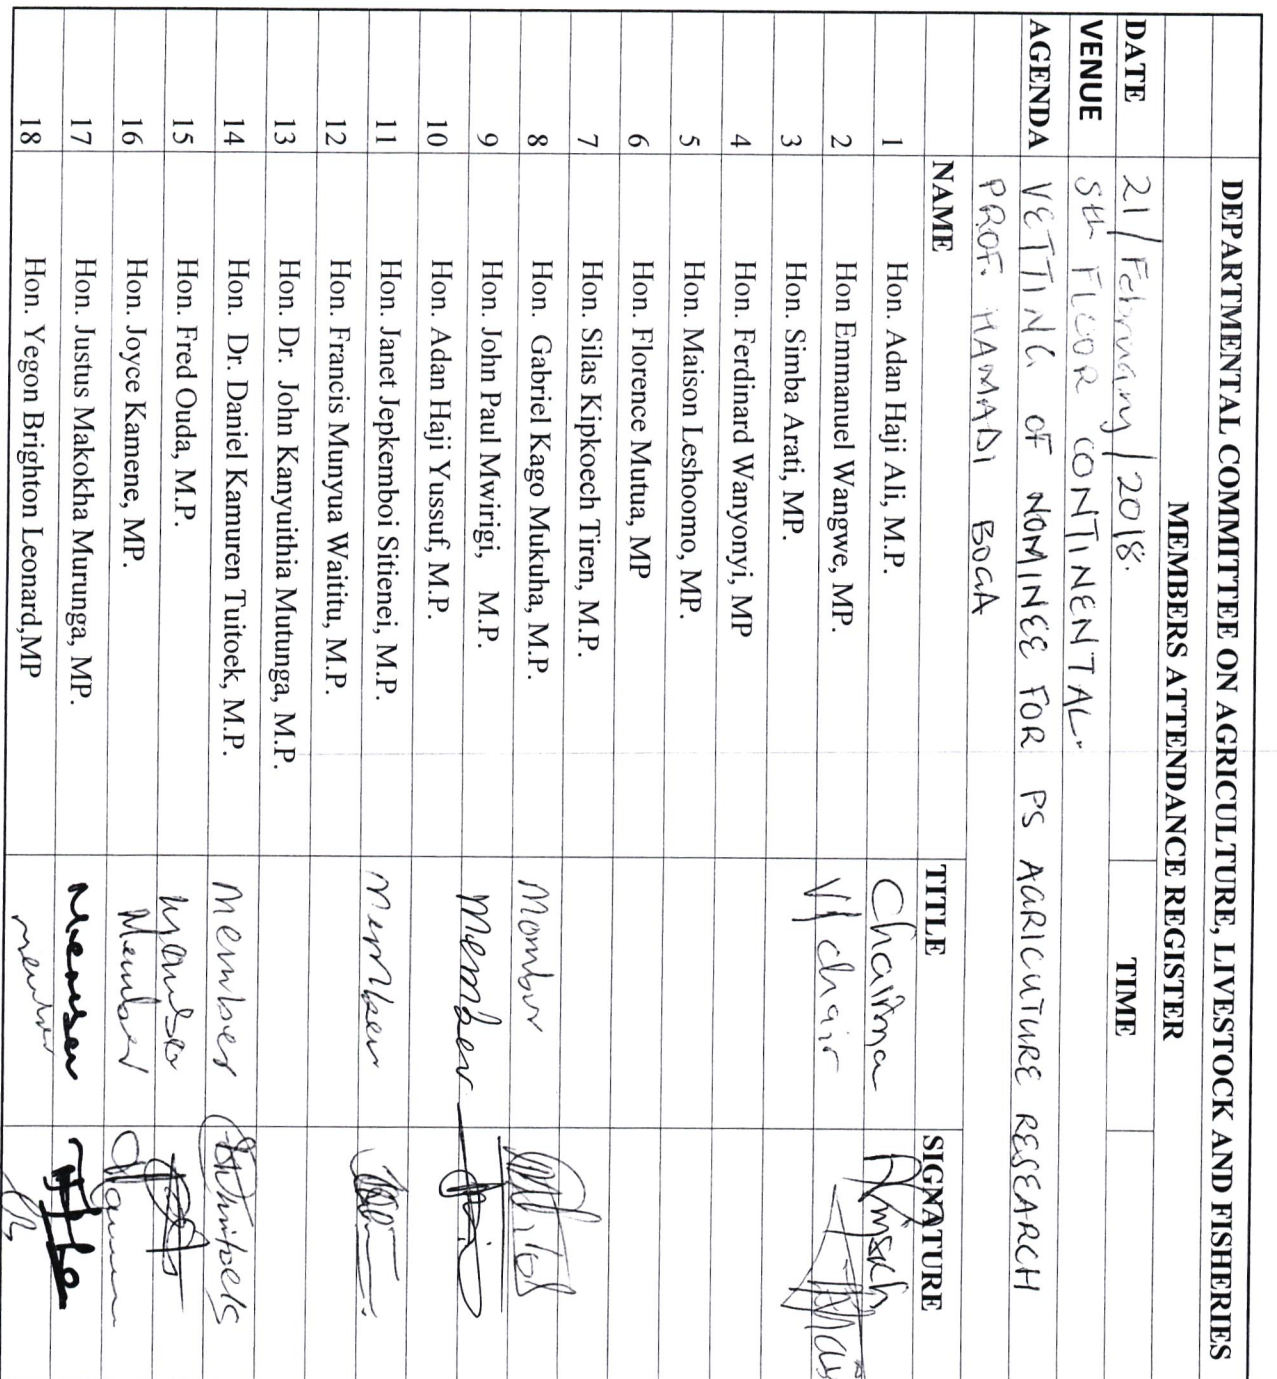 DEPARTMENTAL COMMITTEE ON AGRICULTURE, LIVESTOCK AND FISHERIES
MEMBERS ATTENDANCE REGISTER
DATE 21/February/2018. TIME
VENUE 5th FLOOR CONTINENTAL.
AGENDA VETTING OF NOMINEE FOR PS AGRICULTURE RESEARCH
PROF. HAMADI BOGA
NAME TITLE SIGNATURE
1 Hon. Adan Haji Ali, M.P. Chairma
2 Hon Emmanuel Wangwe, MP. V/chair
3 Hon. Simba Arati, MP.
4 Hon. Ferdinard Wanyonyi, MP
5 Hon. Maison Leshoomo, MP.
6 Hon. Florence Mutua, MP
7 Hon. Silas Kipkoech Tiren, M.P.
8 Hon. Gabriel Kago Mukuha, M.P. Member
9 Hon. John Paul Mwirigi, M.P. Member
10 Hon. Adan Haji Yussuf, M.P.
11 Hon. Janet Jepkemboi Sitienei, M.P. Member
12 Hon. Francis Munyua Waititu, M.P.
13 Hon. Dr. John Kanyuithia Mutunga, M.P.
14 Hon. Dr. Daniel Kamuren Tuitoek, M.P. Member
15 Hon. Fred Ouda, M.P. Member
16 Hon. Joyce Kamene, MP. Member
17 Hon. Justus Makokha Murunga, MP. Member
18 Hon. Yegon Brighton Leonard,MP member